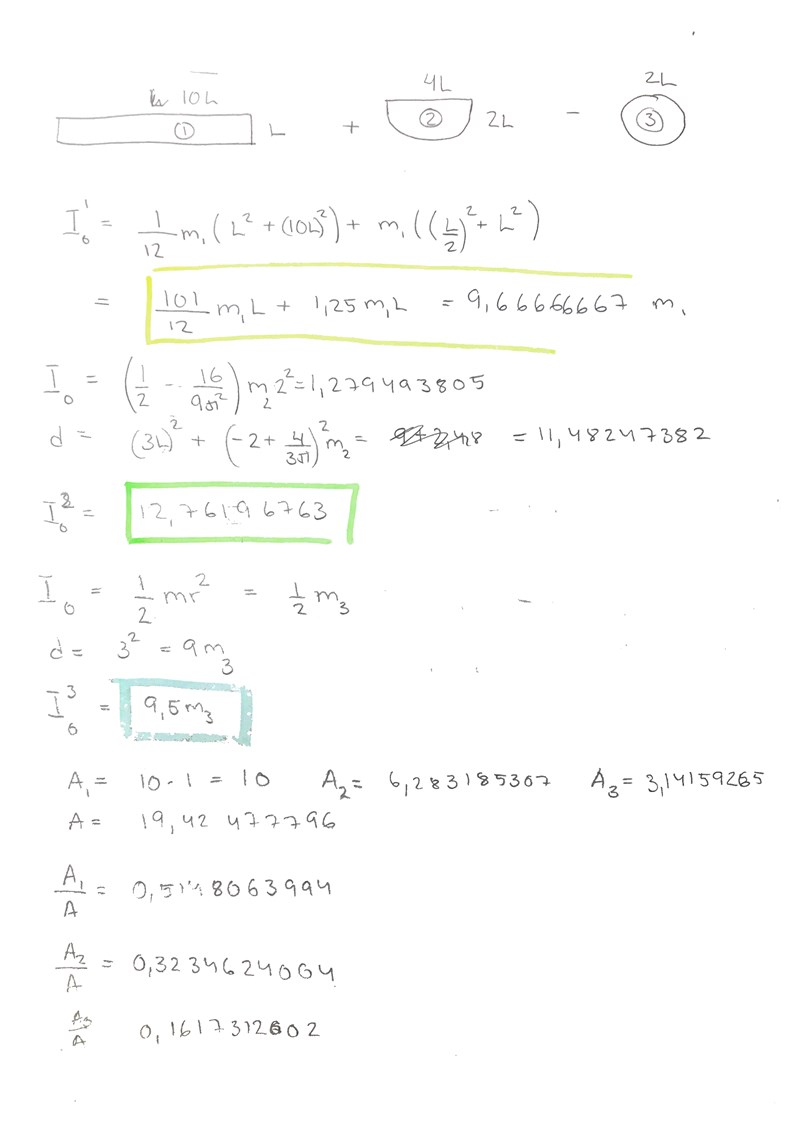 10L 4L 2L
① L + ② 2L - ③
I₀¹ = 1/12 m₁ (L² + (10L)²) + m₁ ((L/2)² + L²)
= 101/12 m₁L + 1,25 m₁L = 9,66666667 m₁
I₀ = (1/2 - 16/9π²) m₂ 2² = 1,279493805
d = (3L)² + (-2 + 4/3π)² m₂ = = 11,48247382
I₀² = 12,76196763
I₀ = 1/2 mr² = 1/2 m₃
d = 3² = 9 m₃
I₀³ = 9,5 m₃
A₁ = 10 · 1 = 10 A₂ = 6,283185307 A₃ = 3,14159265
A = 19,42 477796
A₁/A = 0,5148063994
A₂/A = 0,3234624004
A₃/A 0,1617312002